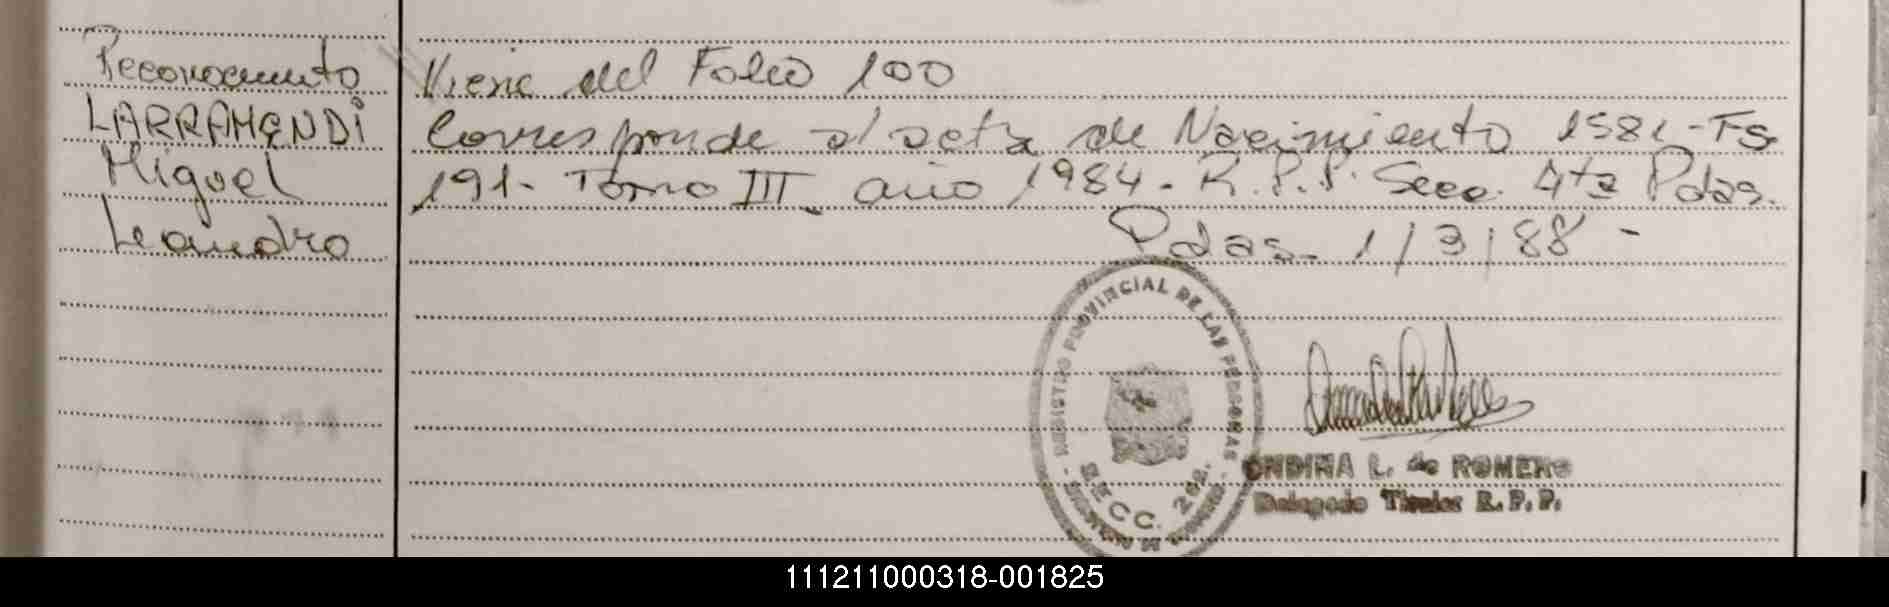 Reconocimiento
LARRAMENDI
Miguel
Leandro
Viene del Folio 100
Corresponde al acta de Nacimiento 1581-Fs
191- Tomo III. año 1984. R.P.P. Secc. 4ta Pdas.
Pdas. 1/3/88-
REGISTRO PROVINCIAL DE LAS PERSONAS
SECC. 262.
ONDINA L. de ROMERO
Delegado Titular R.P.P.
111211000318-001825